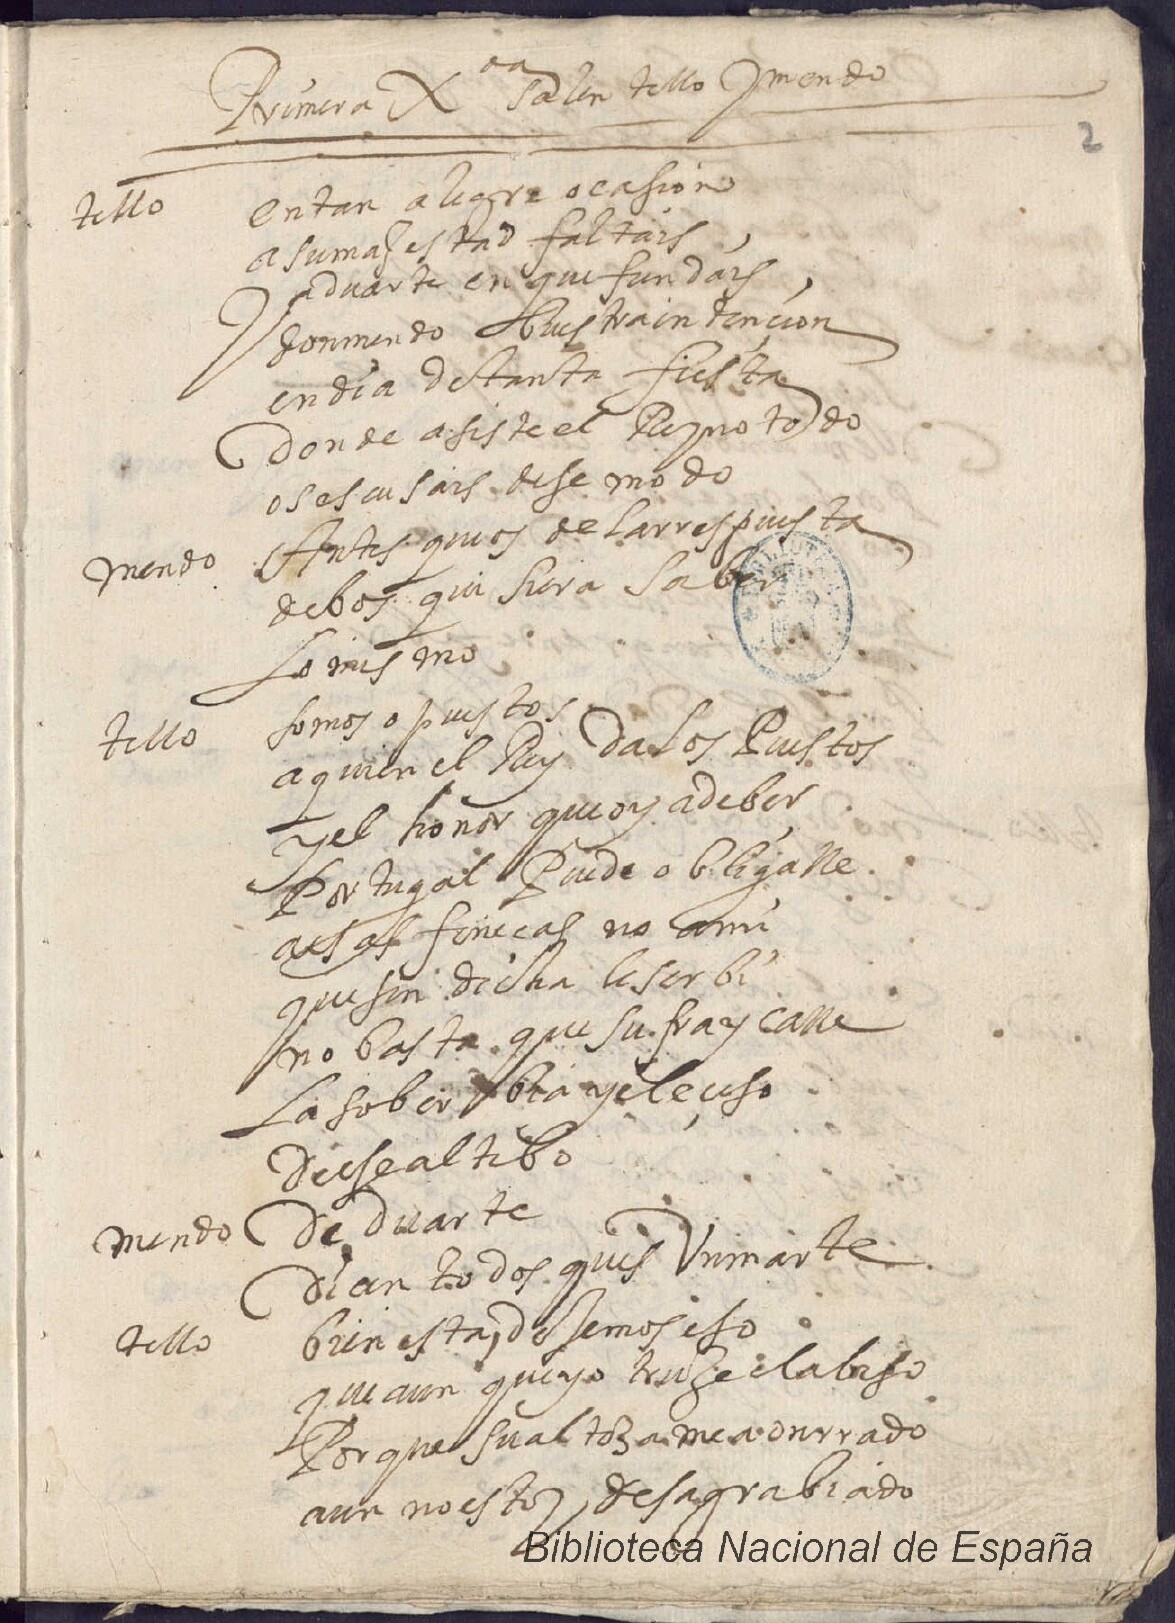 Primera Xᵃᵃ salen tello y mendo
2
tello en tan alegre ocasion
a su majestad faltais,
y a duarte en que fundais,
don mendo buestra intencion
en dia de tanta fiesta
donde asiste el Reyno todo
os escusais dese modo
mendo Antes que os de la rrespuesta
de bos quisiera saber
Lo mismo
tello somos opuestos
a quien el Rey da los Puestos
y el honor que oy a deber
Portugal Puede obligalle
a esas finecas no a mi
que sin dicha le serbi
no basta que sufra y calle
La soberbia y el eceso
de ese altibo
mendo De duarte
dicen todos que es Un marte
tello bien esta, dejemos eso
que aun que yo truje el abiso
Por que su alteza me a onrrado
aun no estoy desagrabiado
Biblioteca Nacional de España